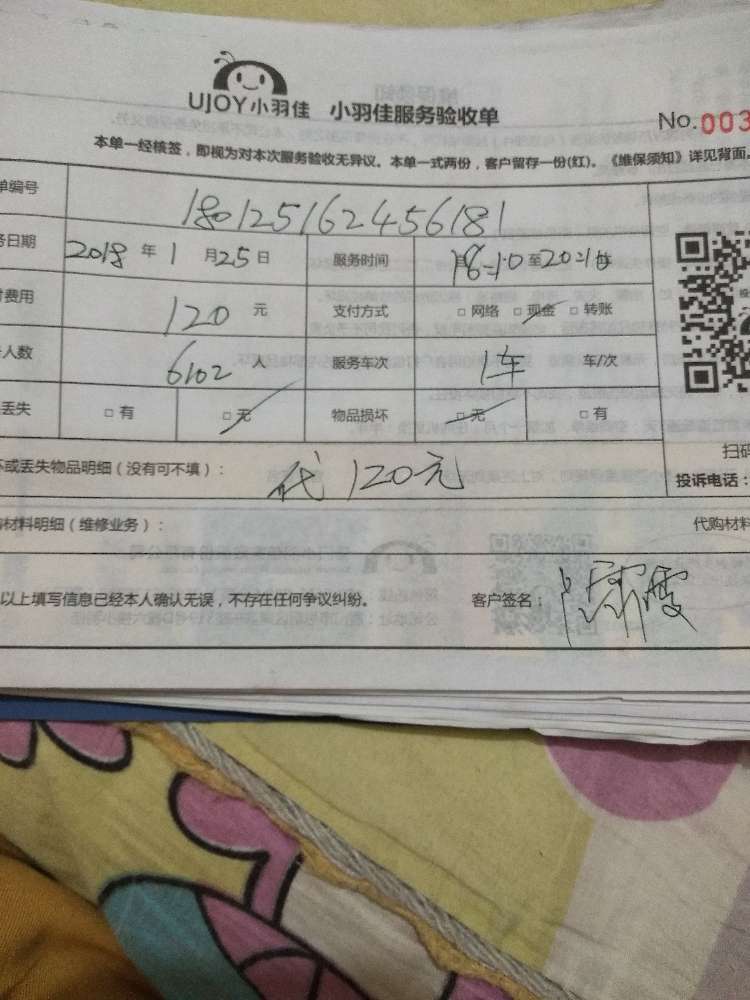 UJOY小羽佳 小羽佳服务验收单
No.003
本单一经核签，即视为对本次服务验收无异议。本单一式两份，客户留存一份(红)。《维保须知》详见背面。
单编号 180125162456181
务日期 2018 年 1 月 25 日 服务时间 18:10 至 20:10
费用 120 元 支付方式 □ 网络 □ 现金 □ 转账
人数 6102 人 服务车次 1车 车/次
丢失 □ 有 □ 无 物品损坏 □ 无 □ 有
坏或丢失物品明细（没有可不填）： 代 120元
扫码
投诉电话：
材料明细（维修业务）： 代购材料
以上填写信息已经本人确认无误，不存在任何争议纠纷。 客户签名：